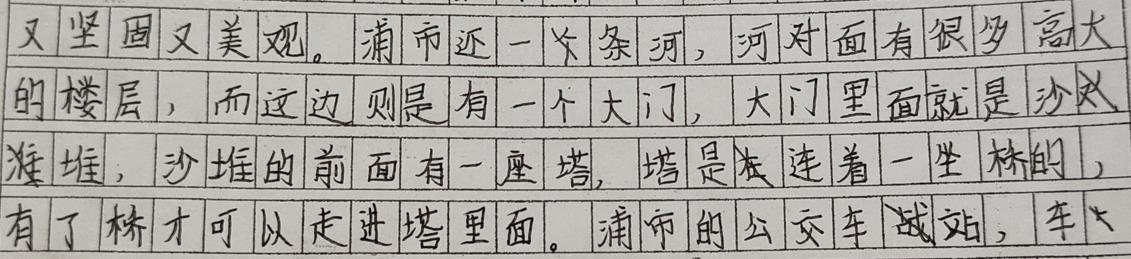 又坚固又美观。浦市还一条河，河对面有很多高大
的楼层，而这边则是有一个大门，大门里面就是沙
堆，沙堆的前面有一座塔，塔是连着一坐桥的，
有了桥才可以走进塔里面。浦市的公交车站，车